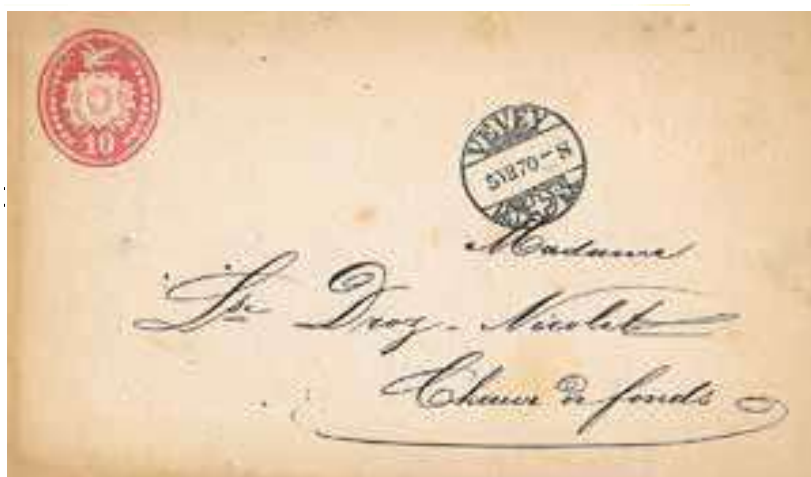 10
VEVEY
Madame
Droz-Nicolet
Chaux de fonds